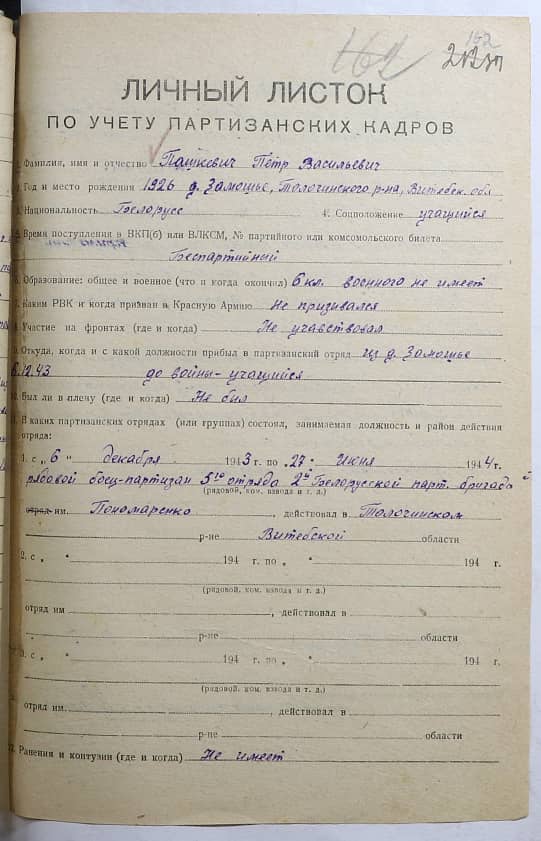 162
162
ЛИЧНЫЙ ЛИСТОК
ПО УЧЕТУ ПАРТИЗАНСКИХ КАДРОВ
Фамилия, имя и отчество Пашкевич Пётр Васильевич
Год и место рождения 1926 д. Замошье, Толочинского р-на, Витебск. обл
Национальность Белорусс 4. Соцположение учащийся
Время поступления в ВКП(б) или ВЛКСМ, № партийного или комсомольского билета
Беспартийный
Образование: общее и военное (что и когда окончил) 6 кл. военного не имеет
Каким РВК и когда призван в Красную Армию Не призивался
Участие на фронтах (где и когда) Не учавствовал
Откуда, когда и с какой должности прибыл в партизанский отряд из д. Замошье
6.12.43 до войны - учащийся
Был ли в плену (где и когда) Не был
В каких партизанских отрядах (или группах) состоял, занимаемая должность и район действия
отряда:
1. с „ 6 " декабря 1943 г. по „ 27 " июня 1944 г.
рядовой боец-партизан 5го отряда 2й Белорусской парт. бригада
(рядовой, ком. взвода и т. д.)
отряд им. Пономаренко, действовал в Толочинском
р-не Витебской области
2. с „ " 194 г. по „ " 194 г.
(рядовой, ком. взвода и т. д.)
отряд им , действовал в
р-не области
3. с „ " 194 г. по „ " 194 г.
(рядовой, ком. взвода и т. д.)
отряд им. , действовал в
р-не области
Ранения и контузии (где и когда) Не имеет